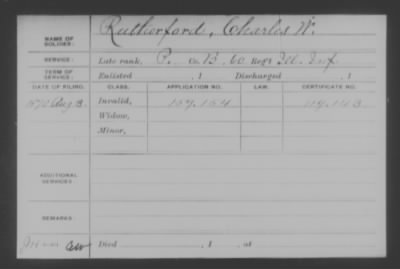 NAME OF SOLDIER: Rutherford, Charles W.
SERVICE: Late rank, P. Co. B, 60 Reg't Ill. Inf
TERM OF SERVICE: Enlisted , 1 Discharged , 1
DATE OF FILING. CLASS. APPLICATION NO. LAW. CERTIFICATE NO.
1870 Aug 3 Invalid,
Widow,
Minor,
ADDITIONAL SERVICES:
REMARKS:
Died , 1 , at